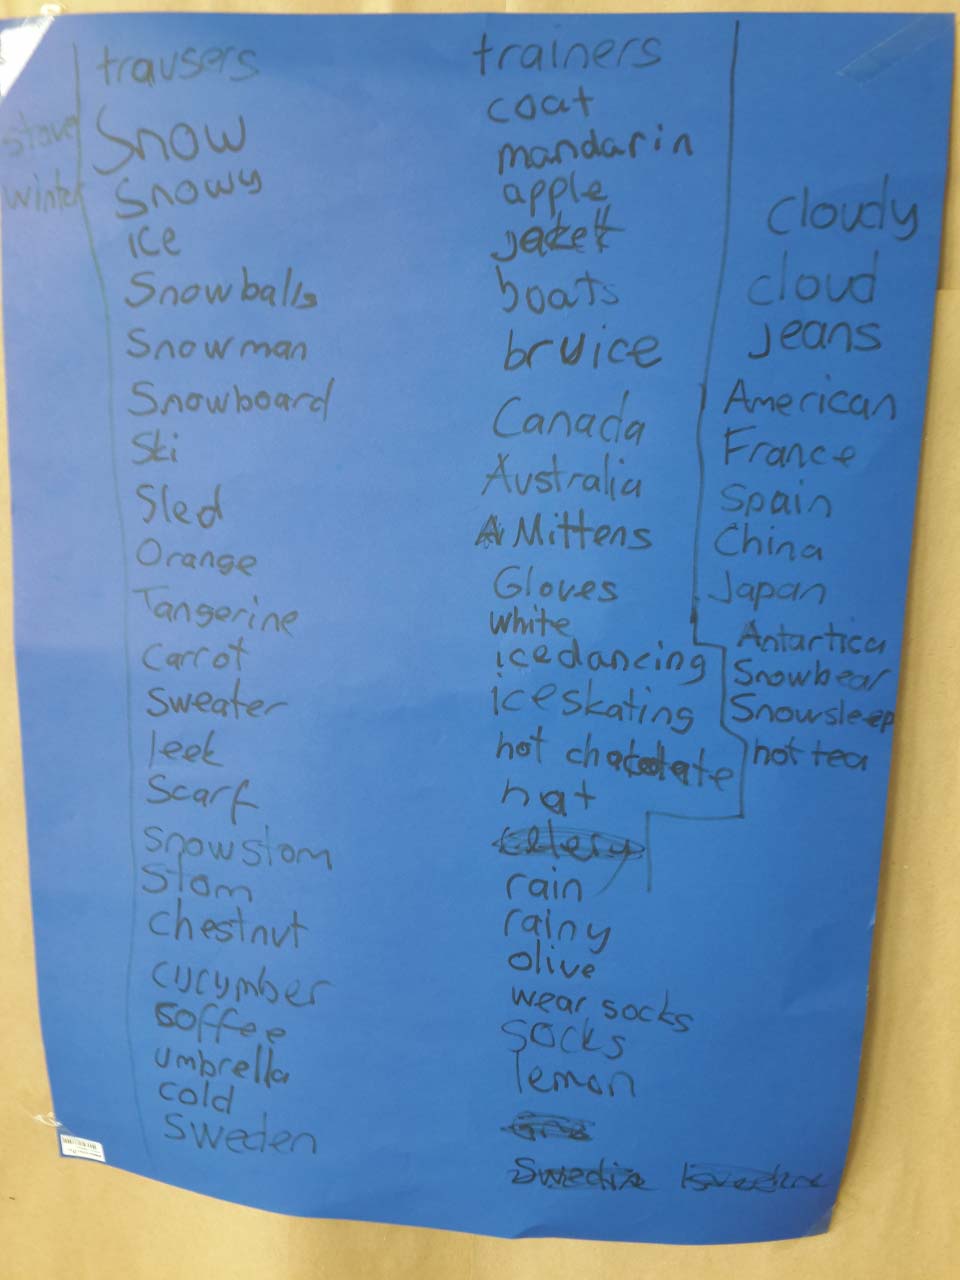 stove
winter
trausers
Snow
Snowy
ice
Snowballs
Snowman
Snowboard
Ski
Sled
Orange
Tangerine
Carrot
Sweater
leek
Scarf
snowstom
Stom
chestnut
cucymber
soffee
umbrella
cold
Sweden
trainers
coat
mandarin
apple
jackett
boats
bruice
Canada
Australia
Mittens
Gloves
white
icedancing
iceskating
hot chacolate
hat
celery
rain
rainy
olive
wear socks
socks
lemon
cloudy
cloud
Jeans
American
France
Spain
China
Japan
Antartica
Snowbear
Snowsleep
hot tea